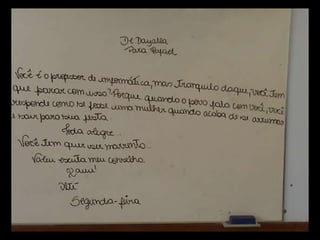 De Dayalla
Para Rafael
Você é o professor de informática, mas tranquilo daqui, você tem
que parar com isso! Porque quando o povo fala com você, você
responde como se fosse uma mulher quando acaba de se arrumar
e sair para sua festa.
Toda alegre...
Você tem que ser marrento...
Valeu escuta meu conselho.
Xau!
Até
Segunda-feira